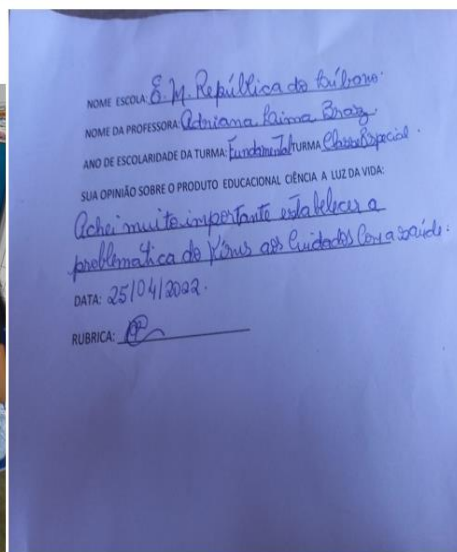 NOME ESCOLA: E. M. República do Líbano
NOME DA PROFESSORA: Adriana Braz
ANO DE ESCOLARIDADE DA TURMA: Fundamental TURMA: Classe Especial.
SUA OPINIÃO SOBRE O PRODUTO EDUCACIONAL CIÊNCIA A LUZ DA VIDA:
Achei muito importante estabelecer a
problemática do Vírus aos Cuidados Com a saúde.
DATA: 25/04/2022.
RUBRICA: